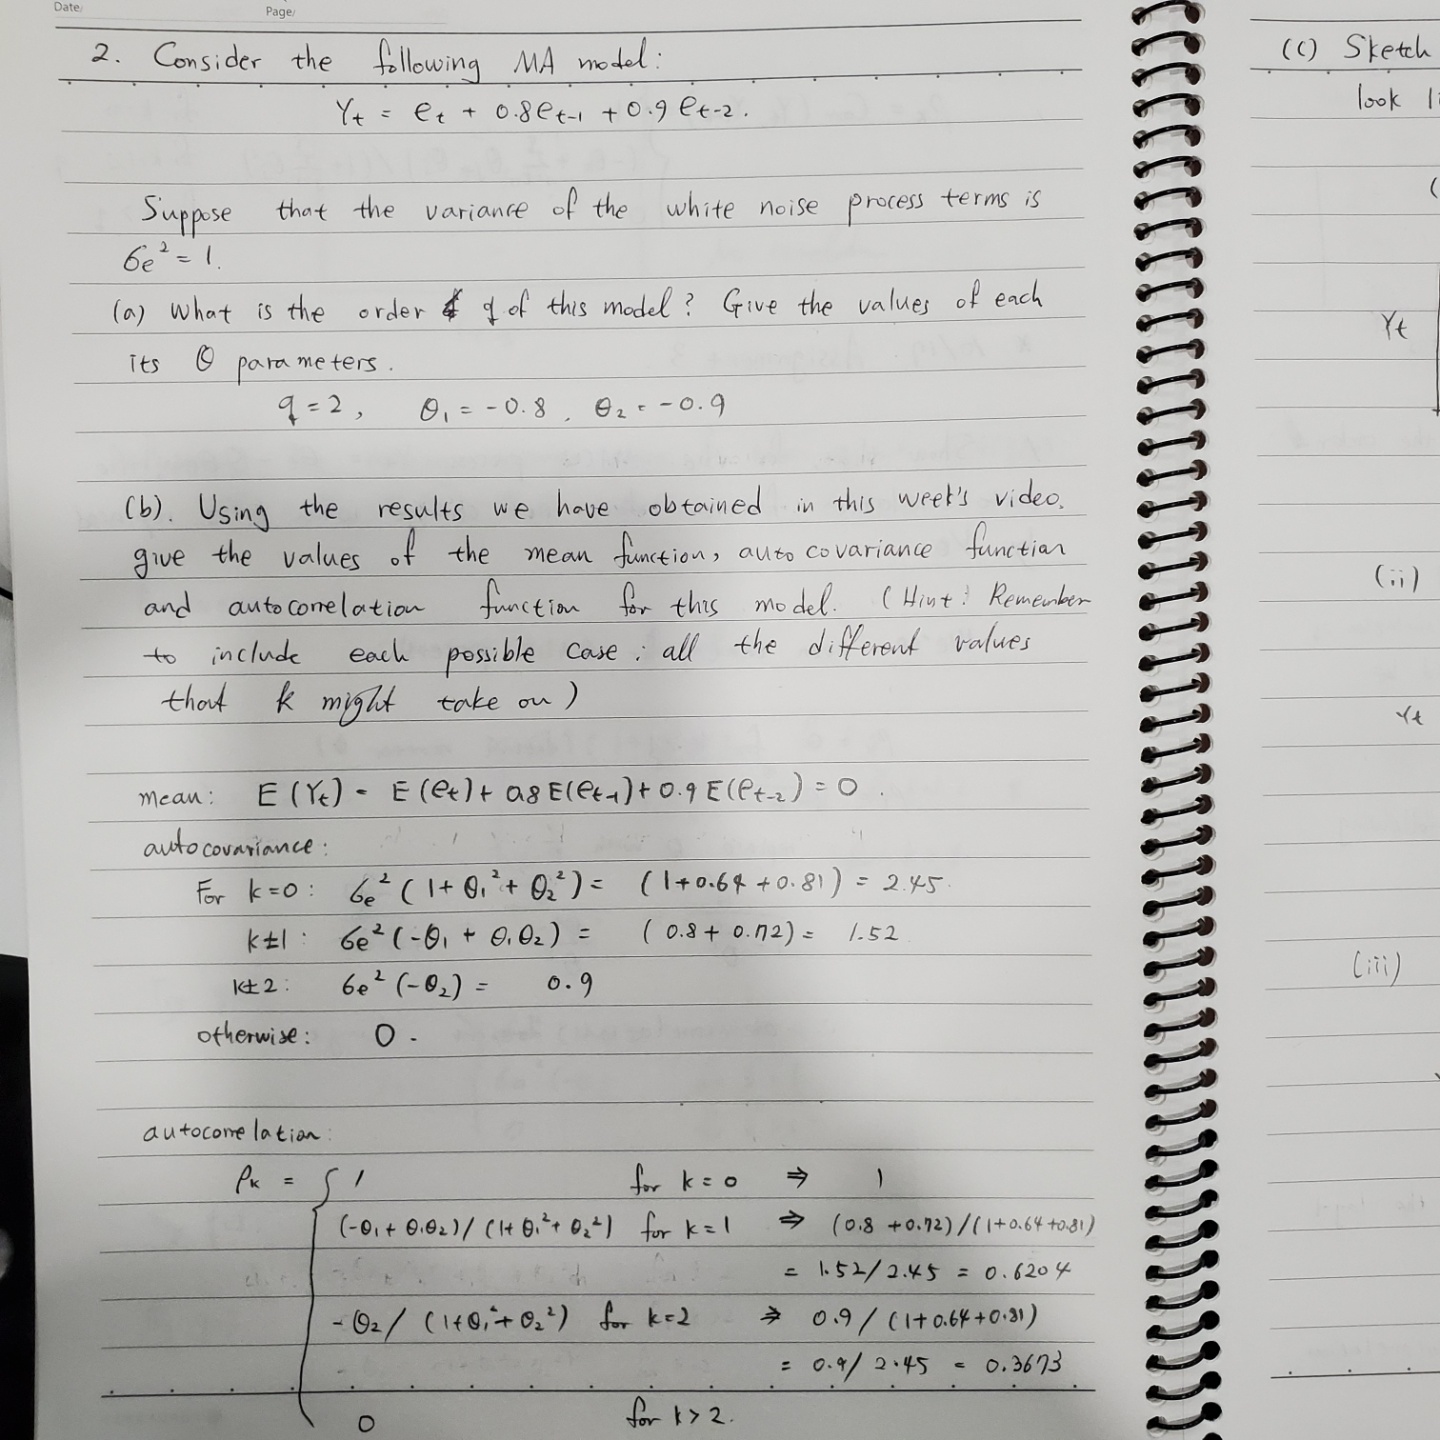 Date/ Page/
2. Consider the following MA model:
Yt = et + 0.8et-1 + 0.9 et-2.
Suppose that the variance of the white noise process terms is
6e² = 1.
(a) What is the order q of this model? Give the values of each
its θ parameters.
q = 2, θ1 = -0.8, θ2 = -0.9
(b). Using the results we have obtained in this week's video,
give the values of the mean function, autocovariance function
and autocorrelation function for this model. (Hint: Remember
to include each possible case: all the different values
that k might take on)
mean: E(Yt) = E(et) + 0.8 E(et-1) + 0.9 E(et-2) = 0.
autocovariance:
For k=0: 6e² (1 + θ1² + θ2²) = (1+0.64+0.81) = 2.45.
k±1: 6e² (-θ1 + θ1θ2) = (0.8 + 0.72) = 1.52
k±2: 6e² (-θ2) = 0.9
otherwise: 0.
autocorrelation:
ρk = { 1 for k = 0 ⇒ 1
(-θ1 + θ1θ2) / (1+θ1²+θ2²) for k=1 ⇒ (0.8 + 0.72)/(1+0.64+0.81)
= 1.52/2.45 = 0.6204
-θ2 / (1+θ1²+θ2²) for k=2 ⇒ 0.9 / (1+0.64+0.81)
= 0.9/2.45 = 0.3673
0 for k>2.
(C) Sketch
look
Yt
(ii)
Yt
(iii)